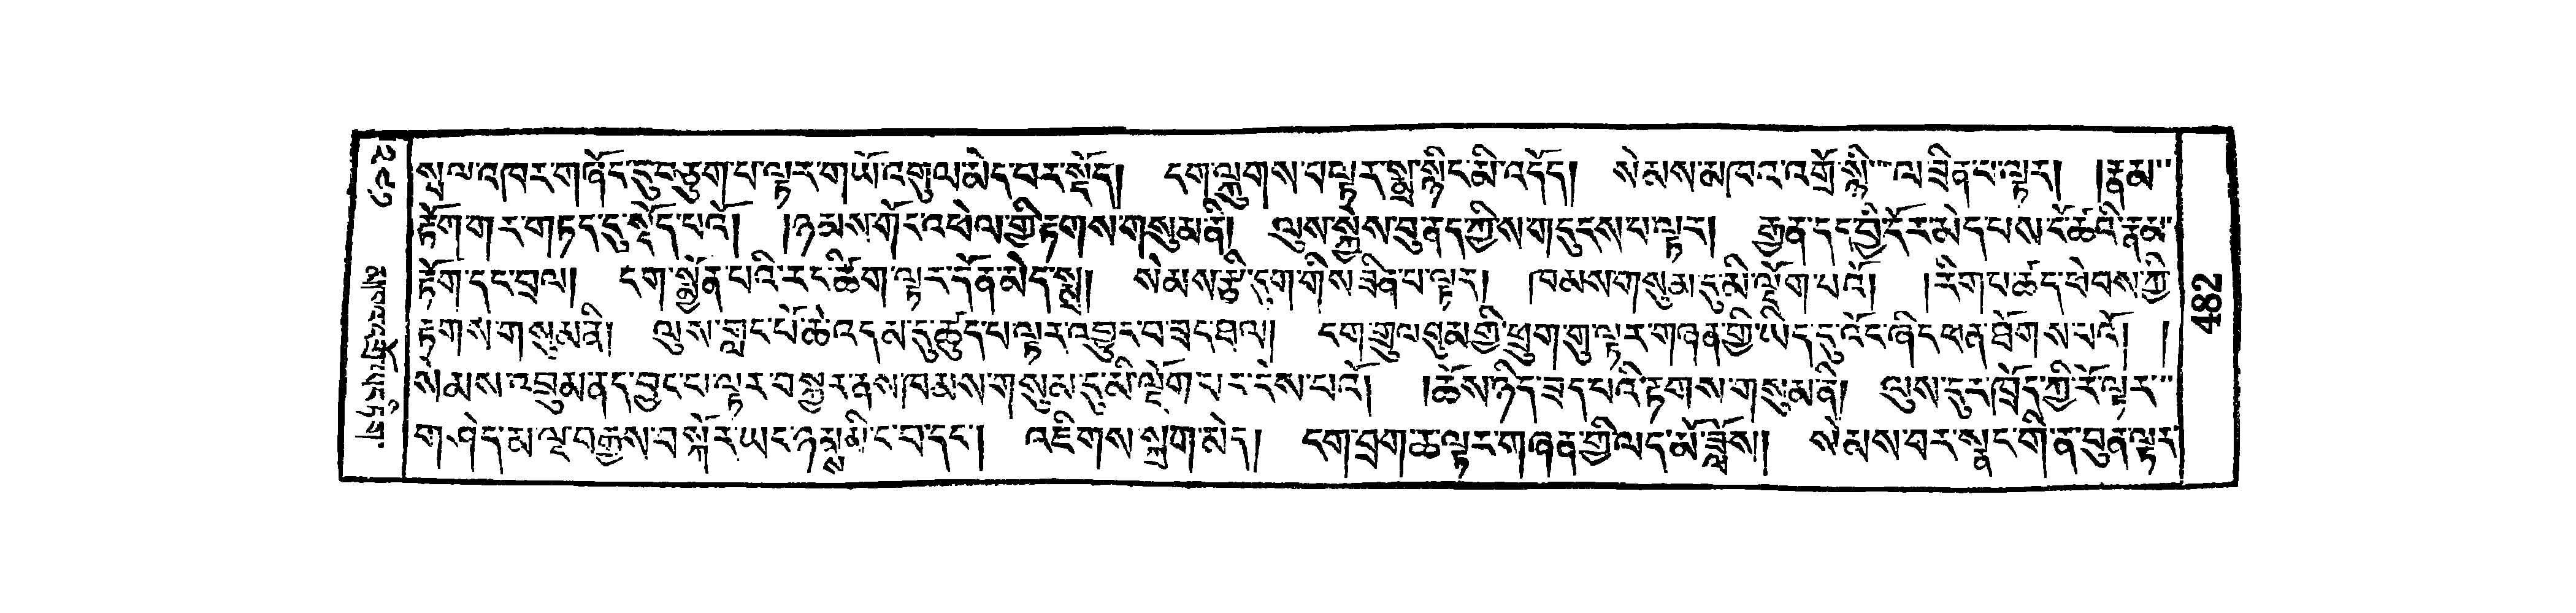 སྤལ་འཁར་གཞོང་དུ་བཅུག་པ་ལྟར་གཡོ་འགུལ་མེད་བར་སྡོད། ངག་ལྐུགས་པ་ལྟར་སྨྲ་སྙིང་མི་འདོད། སེམས་མཁའ་འགྲོ་སྙི་ལ་ཟིན་པ་ལྟར། །རྣམ་
རྟོག་གར་གཏད་དུ་སྡོད་པའོ། །ཉམས་གོང་འཕེལ་གྱི་རྟགས་གསུམ་ནི། ལུས་སྐྱེས་བུ་ནད་ཀྱིས་གདུངས་པ་ལྟར། རྒྱན་དང་བྱི་དོར་མེད་པས་ངོ་ཚའི་རྣམ་
རྟོག་དང་བྲལ། ངག་སྨྱོན་པའི་རང་ཚིག་ལྟར་དོན་མེད་སྨྲ། སེམས་རྩི་དུག་གིས་ཟིན་པ་ལྟར། ཁམས་གསུམ་དུ་མི་ལྡོག་པའོ། །རིག་པ་ཚད་ཕེབས་ཀྱི་
རྟགས་གསུམ་ནི། ལུས་གླང་པོ་ཆེ་འདམ་དུ་ཚུད་པ་ལྟར་འབྱུང་བ་ཟང་ཐལ། ངག་གྲུལ་བུམ་གྱི་ཕྲུག་གུ་ལྟར་གཞན་གྱི་ཡིད་དུ་འོང་ཞིང་ཕན་ཐོགས་པའོ། །
སེམས་འབྲུམ་ནད་བྱང་པ་ལྟར་བསྐྱར་ནས་ཁམས་གསུམ་དུ་མི་ལྡོག་པར་ངེས་པའོ། །ཆོས་ཉིད་ཟད་པའི་རྟགས་གསུམ་ནི། ལུས་དུར་ཁྲོད་ཀྱི་རོ་ལྟར་
ག་ཤེད་མ་ལྔ་བརྒྱས་བསྐོར་ཡང་ཉམ་ང་བ་དང་། འཇིགས་སྐྲག་མེད། ངག་བྲག་ཆ་ལྟར་གཞན་གྱི་ལད་མོ་ཟློས། སེམས་བར་སྣང་གི་ན་བུན་ལྟར་
284